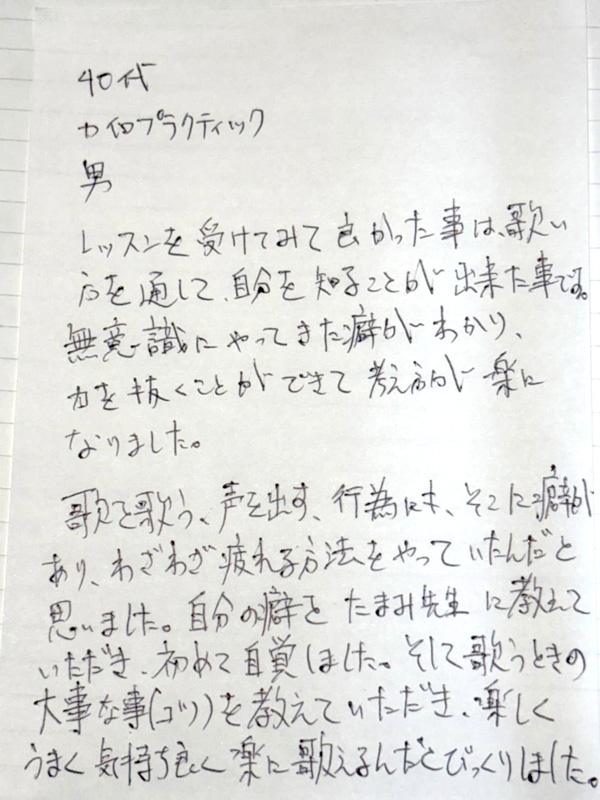 40代
カイロプラクティック
男
レッスンを受けてみて良かった事は、歌い
方を通して、自分を知ることが出来た事です。
無意識にやってきた癖がわかり、
力を抜くことができて考え方が楽に
なりました。
歌を歌う、声を出す、行為にも、そこに癖が
あり、わざわざ疲れる方法をやっていたんだと
思いました。自分の癖をたまみ先生に教えて
いただき、初めて自覚しました。そして歌うときの
大事な事(コツ)を教えていただき、楽しく
うまく気持ち良く楽に歌えるんだとびっくりしました。